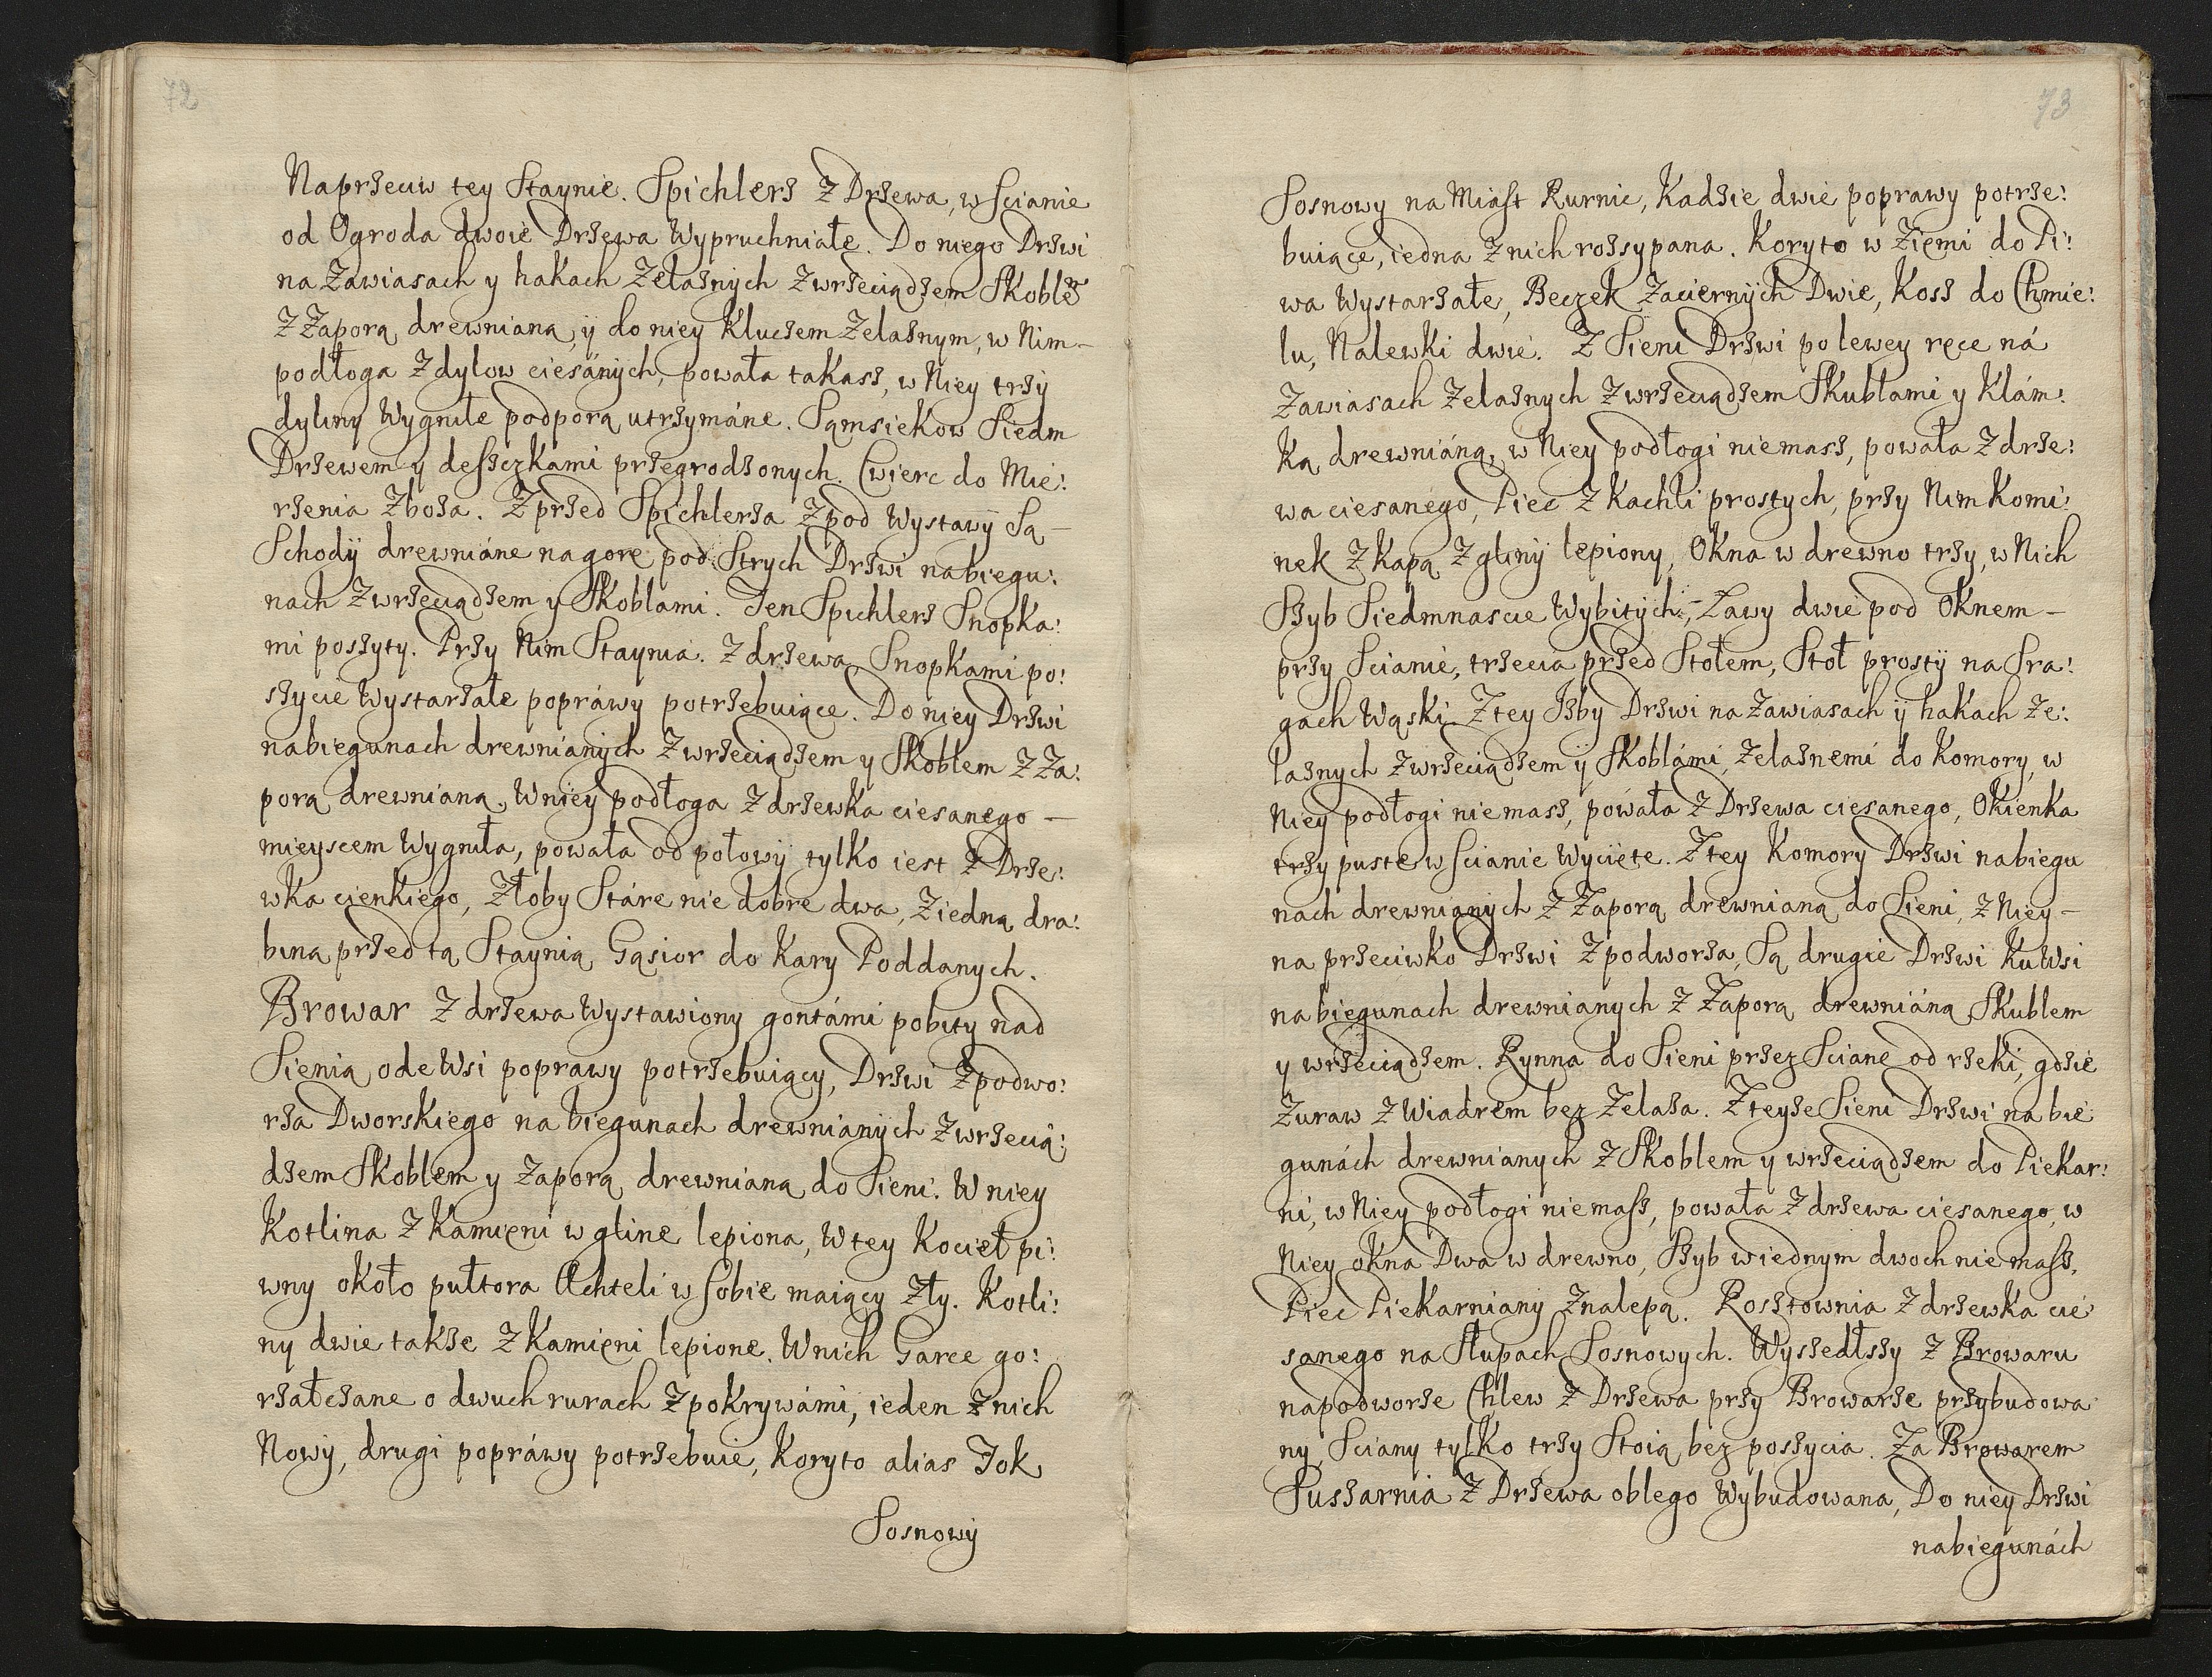 72
Naprzeciw tey Staynie. Spichlerz z Drzewa, w scianie
od Ogroda dwoie Drzewa Wypruchniałe. Do niego Drzwi
na Zawiasach y hakach Zelaznÿch z wrzeciądzem Skoblē
z Zaporą drewnianą, ÿ do niey Kluczem Zelaznym, w Nim –
podłoga z dylow ciesánÿch, powała takasz, w Niey trzÿ
dyliny Wygniłe podporą utrzymáne. Sąmsiekow Siedm
Drzewem y desczkami przegrodzonych. Cwierc do Mie:
rzenia Zboza. Zprzed Spichlerza Zpod Wystawÿ Są –
Schodÿ drewniáne na gorę pod Strych Drzwi na biegu:
nach z wrzeciądzem y Skoblami. Ten Spichlerz Snopka:
mi poszyty. Przy Nim Staynia. z drzewa, Snopkami po:
szycie Wystarzałe popráwy potrzebuiące. Do niey Drzwi
na biegunach drewnianÿch z wrzeciądzem y Skoblem z Za:
porą drewnianą, W niey podłoga z drzewka ciesanego –
mieyscem Wygniła, powała od połowÿ tylko iest z Drze:
wka cienkiego, Złoby Stáre nie dobre dwa, z iedną dra:
biną przed tą Staynią Gąsior do Kary Poddanych.
Browar z drzewa Wystawiony gontámi pobity nad
Sienią ode Wsi poprawy potrzebuiący, Drzwi z podwo:
rza Dworskiego na biegunach drewnianÿch z wrzecią:
dzem Skoblem y Zaporą drewnianą do Sieni. W niey
Kotlina z Kamięni w glinę lepiona, W tey Kocieł pi:
wny około pułtora Achteli w sobie maiący Zły. Kotli:
ny dwie takze z Kamięni lepione. W nich Garce go:
rzałczane o dwuch rurach z pokrywámi, ieden z nich
Nowÿ, drugi popráwy potrzebuie, Koryto alias Jok
Sosnowÿ
73
Sosnowy na Miast Rurnic, Kadzie dwie poprawy potrze:
buiące, iedna z nich rozsypana. Koryto w Ziemi do Pi:
wa Wystarzałe, Beczek Zaciernÿch Dwie, Kosz do Chmie:
lu, Nalewki dwie. Z Sieni Drzwi po lewey ręce ná
Zawiasach Zelaznych z wrzeciądzem Skubłami y Klám:
ką drewniáną, w Niey podłogi niemasz, powała z drze:
wa ciesanego, Piec z Kachli prostych, przy Nim Komi:
nek z Kapą z glinÿ lepiony, Okna w drewno trzy, w Nich
Szyb Siedmnascie Wybitÿch, Ławy dwie pod Oknem –
przy Scianie, trzecia przed Stołem, Stoł prostÿ na Sra:
gach Wąski. Z tey Jzby Drzwi na Zawiasach ÿ hakach Ze:
laznych z wrzeciądzem ÿ Skoblámi, Zelaznemi do Komory, w
Niey podłogi niemasz, powała z Drzewa ciesanego, Okienka
trzy puste w scianie Wycięte. Z tey Komory Drzwi na biegu
nach drewnianych z Zaporą drewnianą do Sieni, z Niey –
na przeciwko Drzwi z podworza, Są drugie Drzwi Ku Wsi
na biegunach drewnianych z Zaporą drewniáną Skublem
y wrzeciądzem. Rynna do Sieni przez Scianę od rzeki, gdzie
Zuraw z Wiadrem bez Zelaza. Z teyze Sieni Drzwi na bie
gunách drewnianych z Skoblem y wrzeciądzem do Piekar:
ni, w Niey podłogi niemasz, powała z drzewa ciesanego, w
Niey okna Dwa w drewno, Szyb w iednym dwoch niemasz,
Piec Piekarniany z nalepą. Rosztownia z drzewka cie
sanego na Słupach Sosnowych. Wyszedłszy z Browaru
na podworze Chlew z Drzewa przy Browarze przybudowa
ny, Sciany tylko trzy Stoią bez poszycia. Za Browarem
Suszarnia z Drzewa oblego Wybudowana, Do niey Drzwi
na biegunách